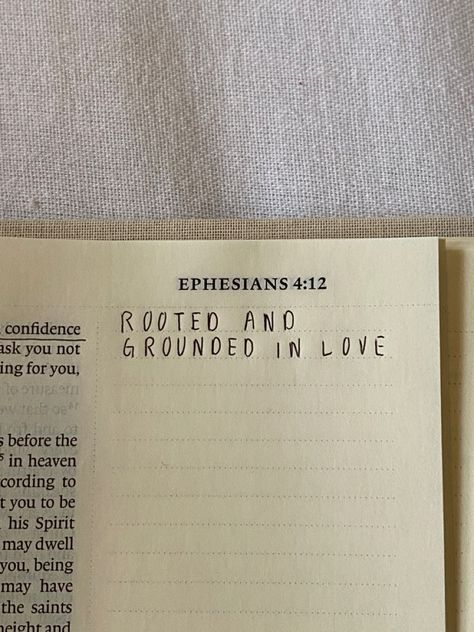 EPHESIANS 4:12
confidence
ask you not
ing for you,
s before the
in heaven
cording to
t you to be
his Spirit
may dwell
you, being
may have
the saints
height and
ROOTED AND
GROUNDED IN LOVE